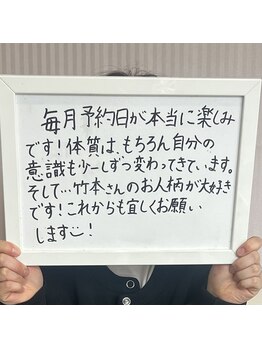 毎月予約日が本当に楽しみ
です!体質は、もちろん自分の
意識も少しずつ変わってきています。
そして…竹本さんのお人柄が大好き
です!これからも宜しくお願い
します☺!